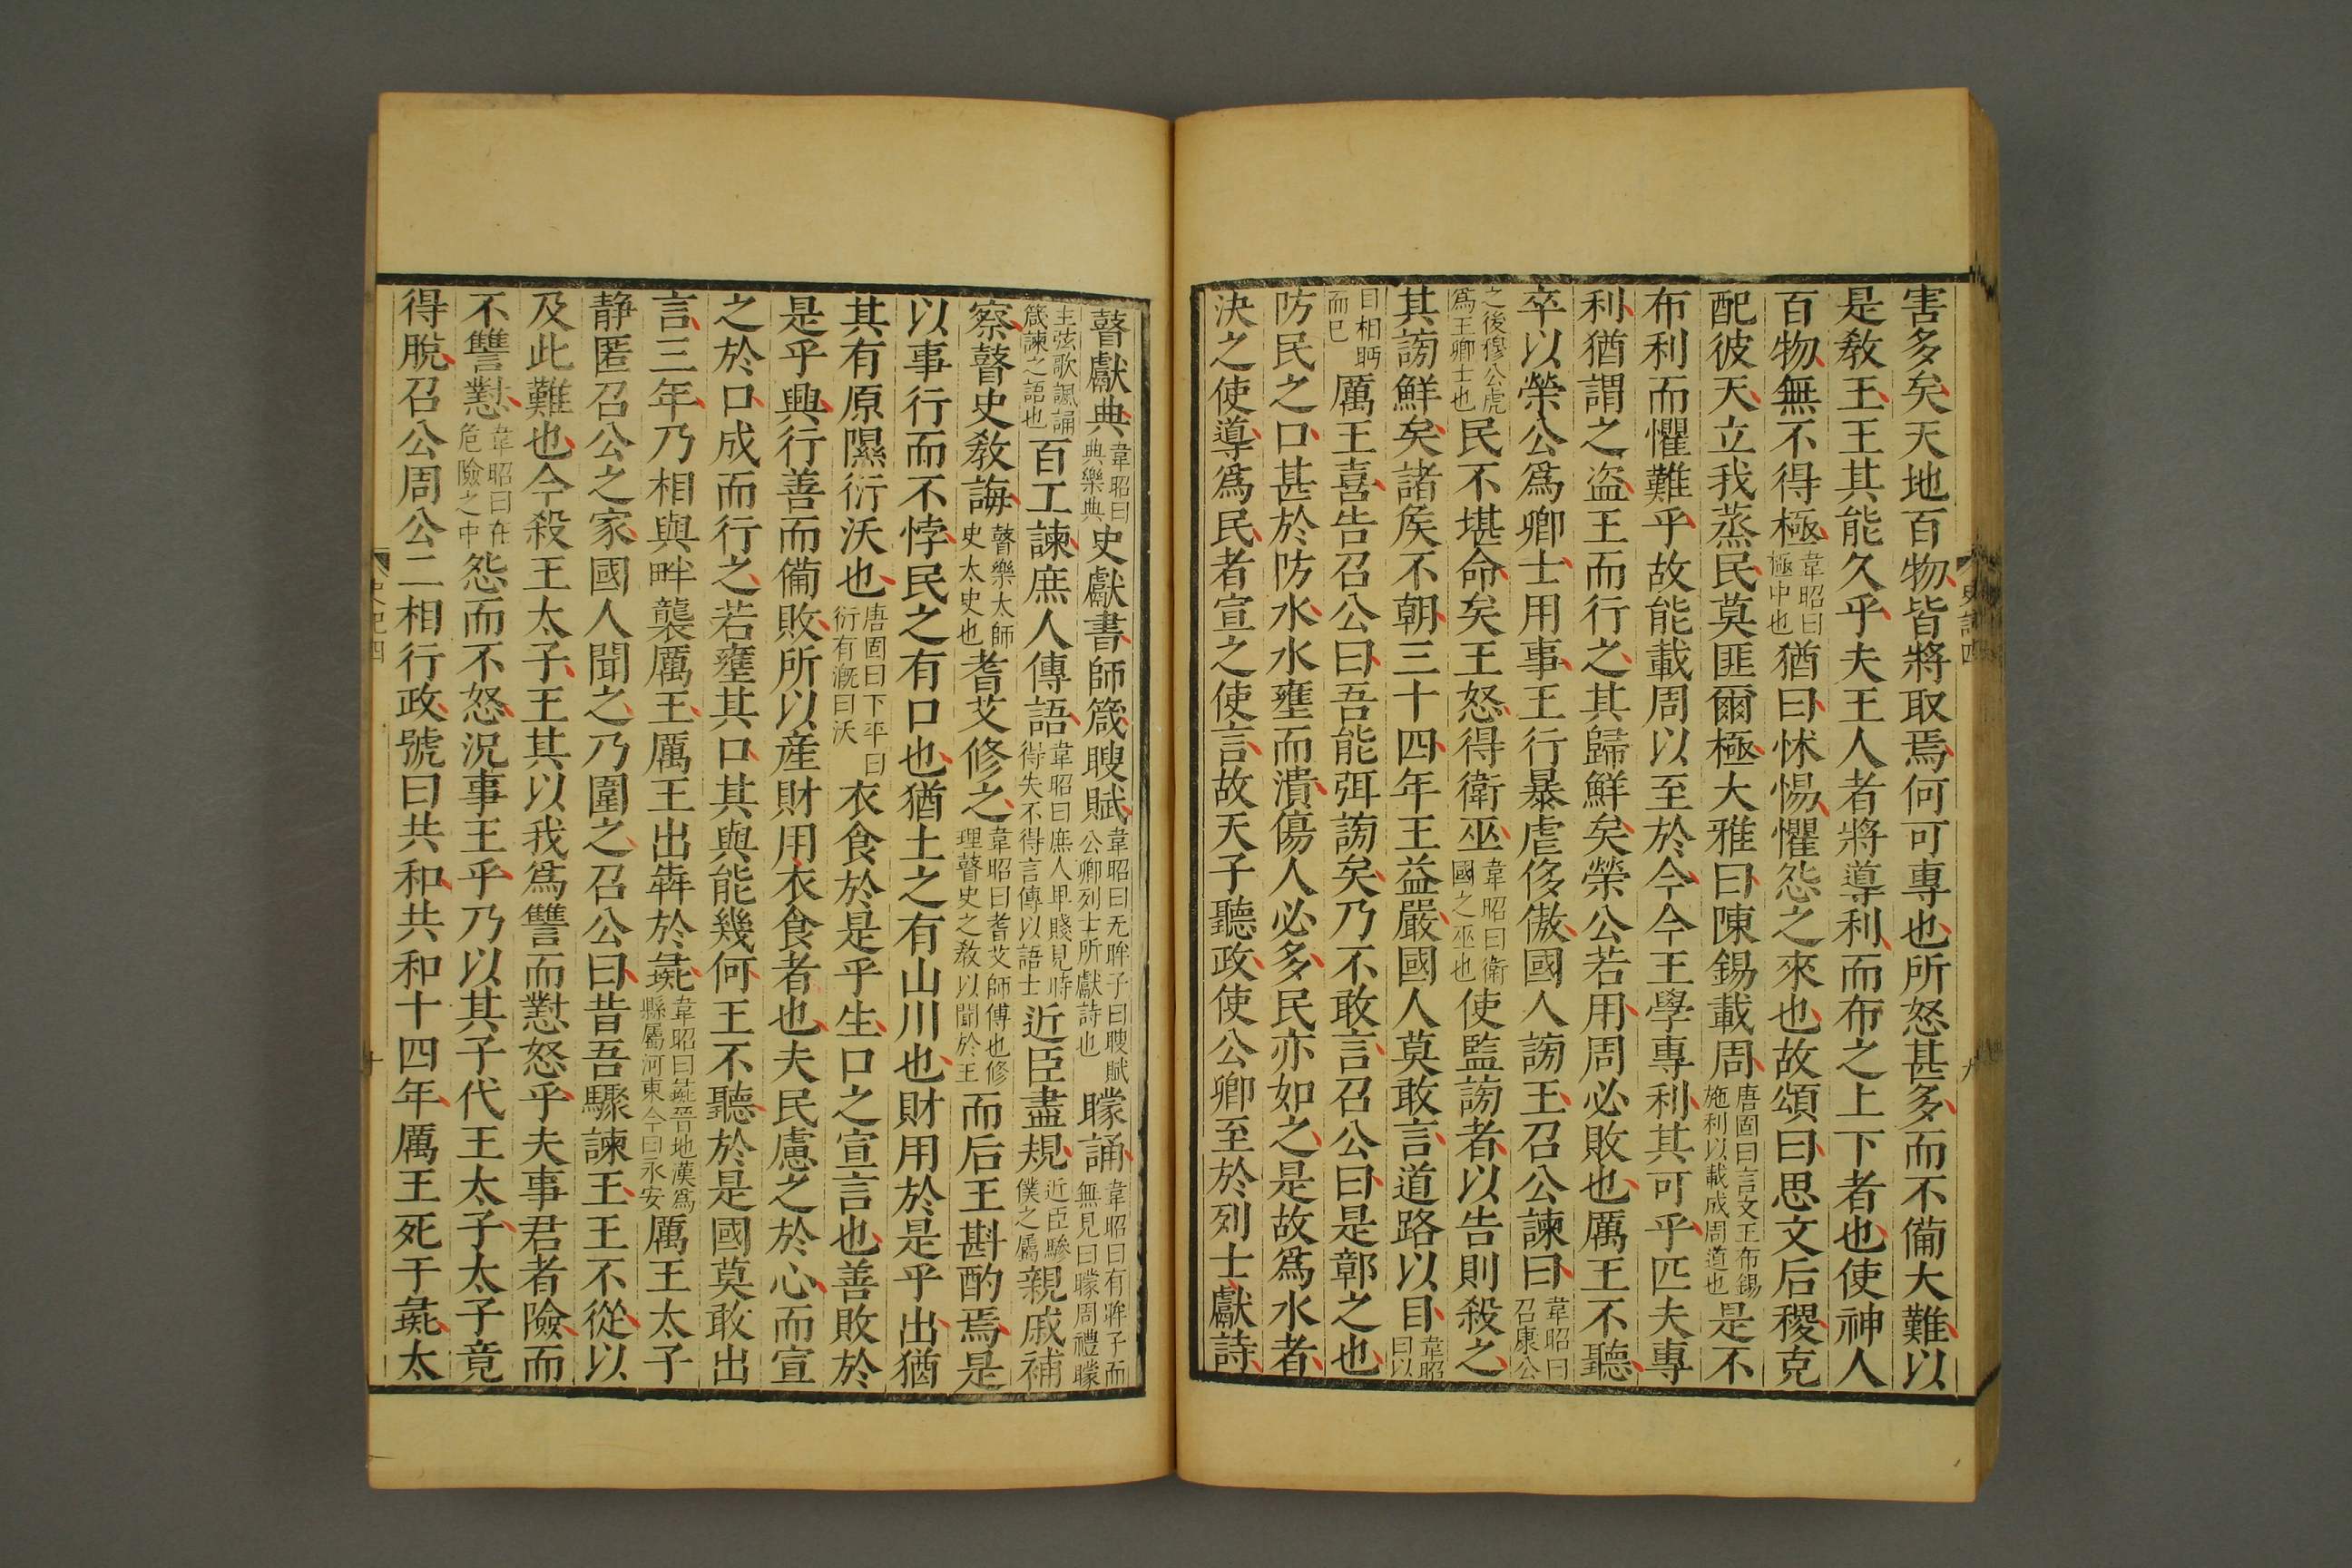 害多矣天地百物皆將取焉何可專也所怒甚多而不備大難以
是教王王其能久乎夫王人者將導利而布之上下者也使神人
百物無不得極韋昭曰極中也猶曰怵惕懼怨之來也故頌曰思文后稷克
配彼天立我蒸民莫匪爾極大雅曰陳錫載周唐固曰言文王布錫施利以載成周道也是不
布利而懼難乎故能載周以至於今今王學專利其可乎匹夫專
利猶謂之盜王而行之其歸鮮矣榮公若用周必敗也厲王不聽
卒以榮公爲卿士用事王行暴虐侈傲國人謗王召公諫曰韋昭曰召康公
之後穆公虎爲王卿士也民不堪命矣王怒得衛巫韋昭曰衛國之巫也使監謗者以告則殺之
其謗鮮矣諸矦不朝三十四年王益嚴國人莫敢言道路以目韋昭曰以
目相眄而已厲王喜告召公曰吾能弭謗矣乃不敢言召公曰是鄣之也
防民之口甚於防水水壅而潰傷人必多民亦如之是故爲水者
決之使導爲民者宣之使言故天子聽政使公卿至於列士獻詩
瞽獻典韋昭曰典樂典史獻書師箴瞍賦韋昭曰无眸子曰瞍賦公卿列士所獻詩也矇誦韋昭曰有眸子而無見曰矇周禮矇
主弦歌諷誦箴諫之語也百工諫庶人傳語韋昭曰庶人卑賤見時得失不得言傳以語士近臣盡規近臣驂僕之屬親戚補
察瞽史教誨瞽樂太師史太史也耆艾修之韋昭曰耆艾師傅也修理瞽史之教以聞於王而后王斟酌焉是
以事行而不悖民之有口也猶土之有山川也財用於是乎出猶
其有原隰衍沃也唐固曰下平曰衍有溉曰沃衣食於是乎生口之宣言也善敗於
是乎興行善而備敗所以產財用衣食者也夫民慮之於心而宣
之於口成而行之若壅其口其與能幾何王不聽於是國莫敢出
言三年乃相與畔襲厲王厲王出犇於彘韋昭曰彘晉地漢爲縣屬河東今曰永安厲王太子
靜匿召公之家國人聞之乃圍之召公曰昔吾驟諫王王不從以
及此難也今殺王太子王其以我爲讐而懟怒乎夫事君者險而
不讐懟韋昭曰在危險之中怨而不怒況事王乎乃以其子代王太子太子竟
得脫召公周公二相行政號曰共和共和十四年厲王死于彘太
史記四
十
史記四
九